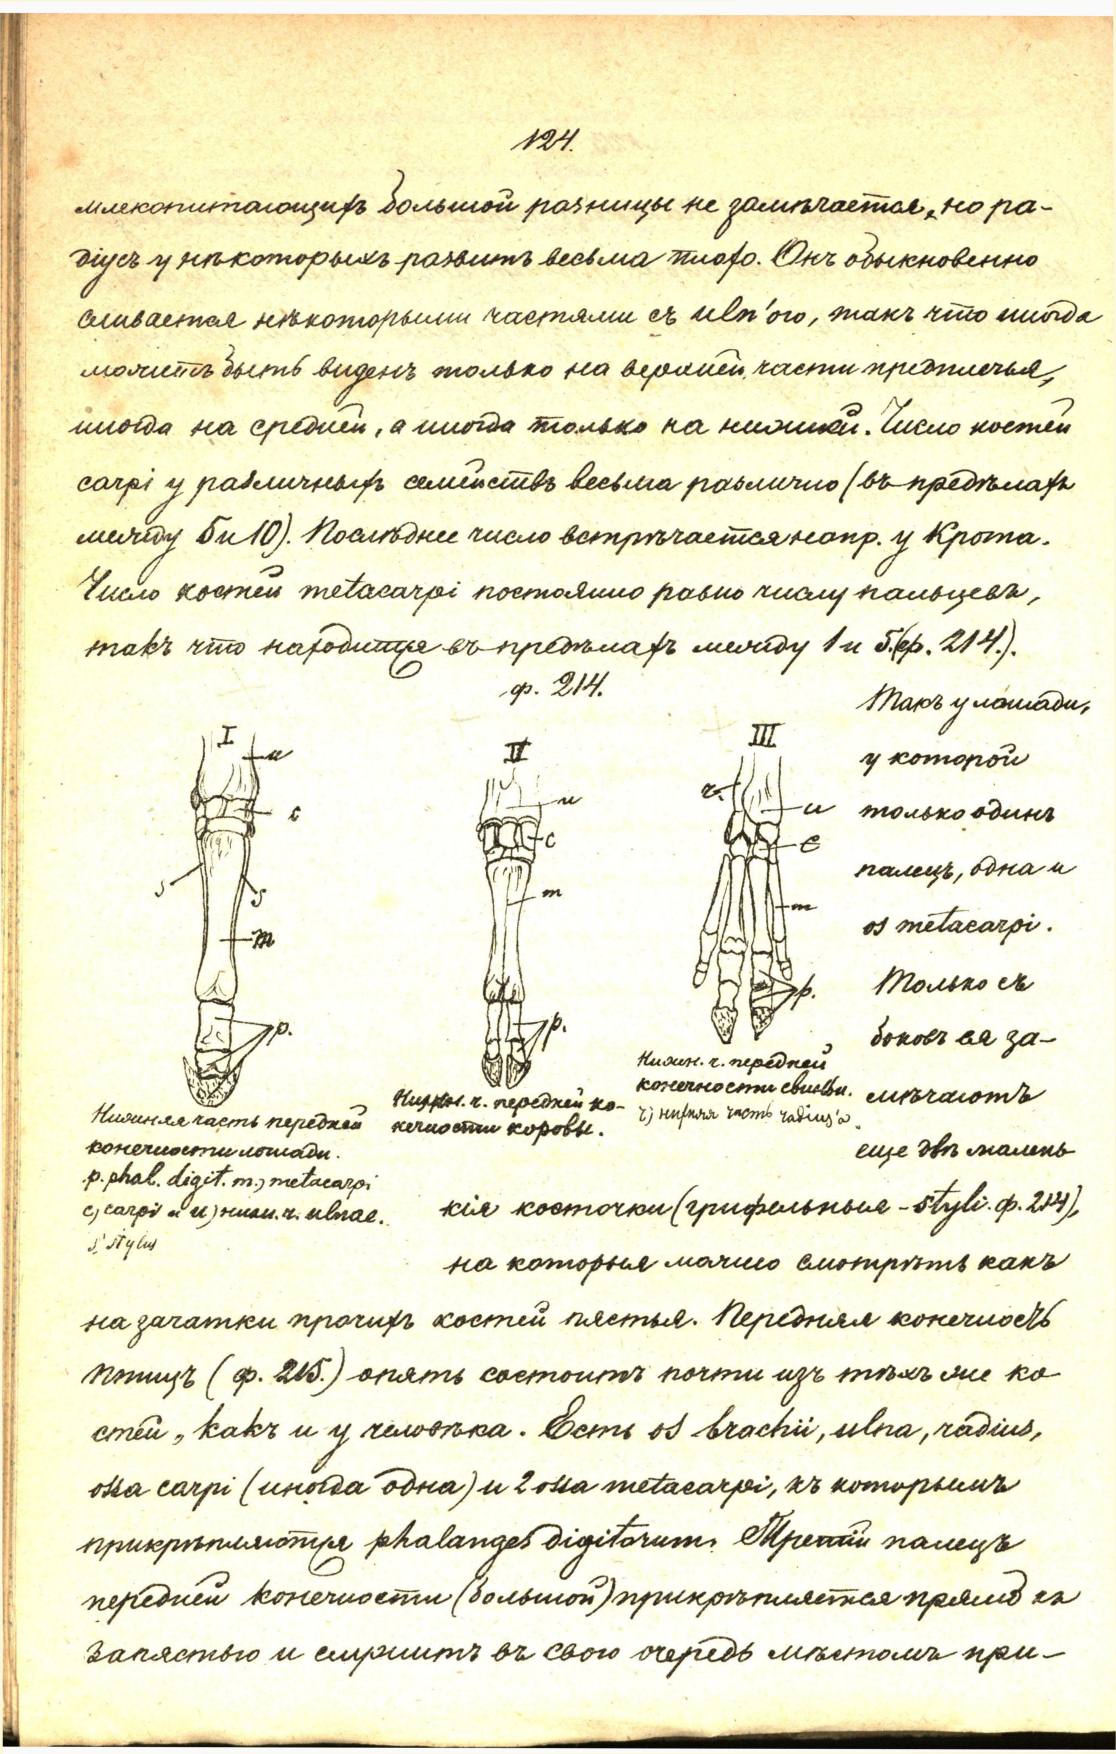 124.
млекопитающихъ большой разницы не замѣчается, но ра-
діусъ у нѣкоторыхъ развитъ весьма плохо. Онъ обыкновенно
сливается нѣкоторыми частями съ uln'ою, такъ что иногда
можетъ быть виденъ только на верхней части предплечья,
иногда на средней, а иногда только на нижней. Число костей
carpi у различныхъ семействъ весьма различно (въ предѣлахъ
между 5 и 10). Послѣднее число встрѣчается напр. у Крота.
Число костей metacarpi постоянно равно числу пальцевъ,
такъ что находится въ предѣлахъ между 1 и 5. (ф. 214.).
ф. 214.
Такъ у лошади,
у которой
только одинъ
палецъ, одна и
os metacarpi.
Только съ
боковъ ея за-
мѣчаютъ
еще двѣ малень-
кія косточки (грифельныя - styli. ф. 214),
на которыя можно смотрѣть какъ
I
u
c
s
s
m
p.
Нижняя часть передней
конечности лошади.
p. phal. digit. m.) metacarpi
c) carpi u) нижн. ч. ulnae.
s) stylus
II
u
c
m
p.
Нижн. ч. передней ко-
нечности коровы.
III
r.
u
c
m
p.
Нижн. ч. передней
конечности свиньи.
r) нижняя часть radius'а.
на зачатки прочихъ костей пястья. Передняя конечность
птицъ (ф. 215.) опять состоитъ почти изъ тѣхъ же ко
стей, какъ и у человѣка. Есть os brachii, ulna, radius,
ossa carpi (иногда одна) и 2 ossa metacarpi, къ которымъ
прикрѣпляются phalanges digitorum. Третій палецъ
передней конечности (большой) прикрѣпляется прямо къ
запястью и служитъ въ свою очередь мѣстомъ при-